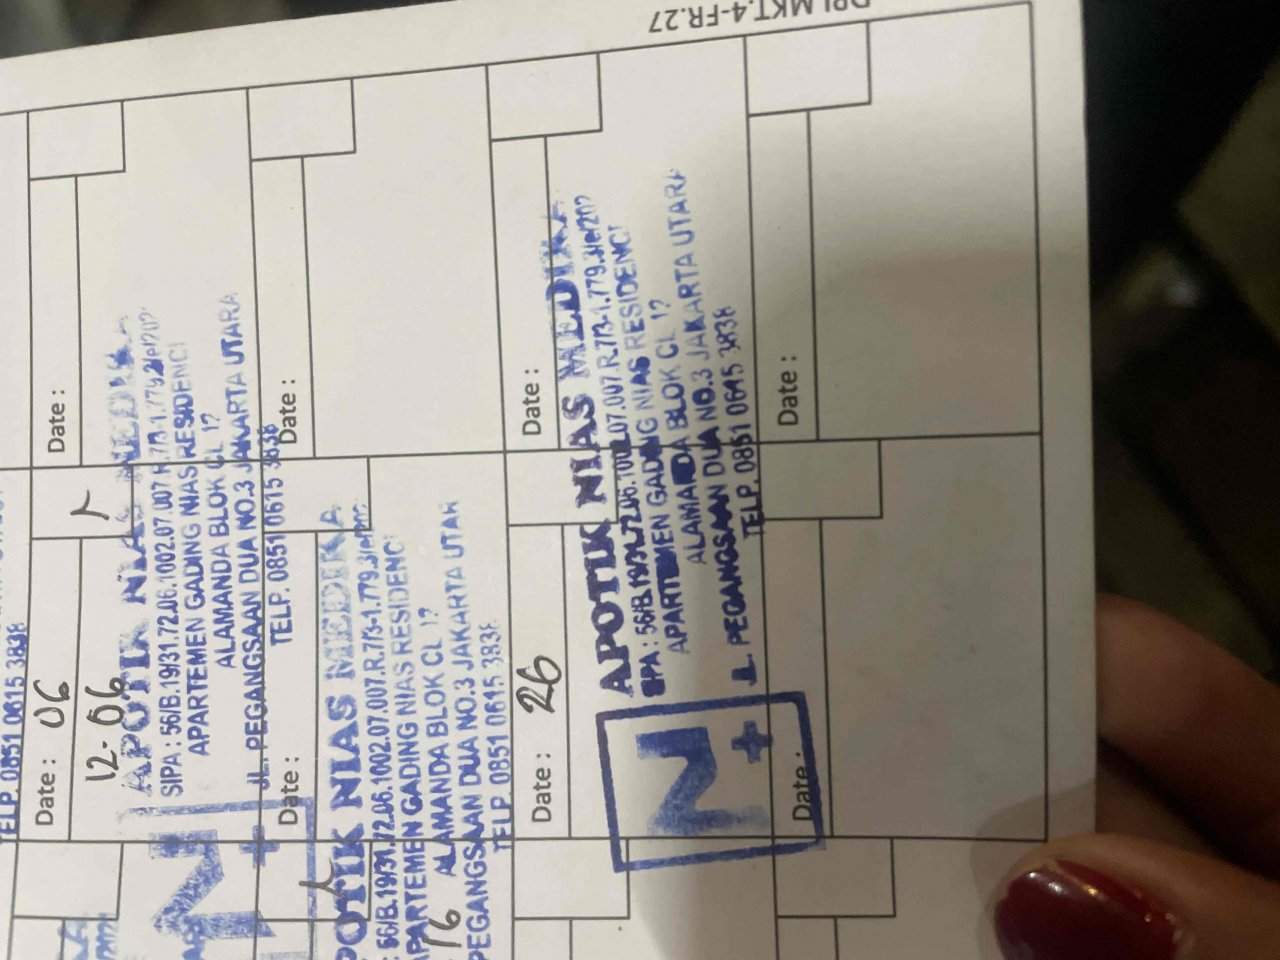 TELP. 0851 0615 3838
Date : 06
12-06
Date :
APOTIK NIAS MEDIKA
SIPA : 56/B.19/31.72.06.1002.07.007.R.7/3-1.779.3/e/202
APARTEMEN GADING NIAS RESIDENCI
ALAMANDA BLOK CL 17
JL. PEGANGSAAN DUA NO.3 JAKARTA UTARA
TELP. 0851 0615 3838
Date :
Date :
POTIK NIAS MEDIKA
: 56/B.19/31.72.06.1002.07.007.R.7/3-1.779.3/e/202
APARTEMEN GADING NIAS RESIDENCI
ALAMANDA BLOK CL 17
PEGANGSAAN DUA NO.3 JAKARTA UTAR
TELP. 0851 0615 3838
Date : 26
Date :
APOTIK NIAS MEDIKA
SIPA : 56/B.19/31.72.06.1002.07.007.R.7/3-1.779.3/e/202
APARTEMEN GADING NIAS RESIDENCI
ALAMANDA BLOK CL 17
JL. PEGANGSAAN DUA NO.3 JAKARTA UTARA
TELP. 0851 0615 3838
N
Date :
Date :
MKT.4-FR.27